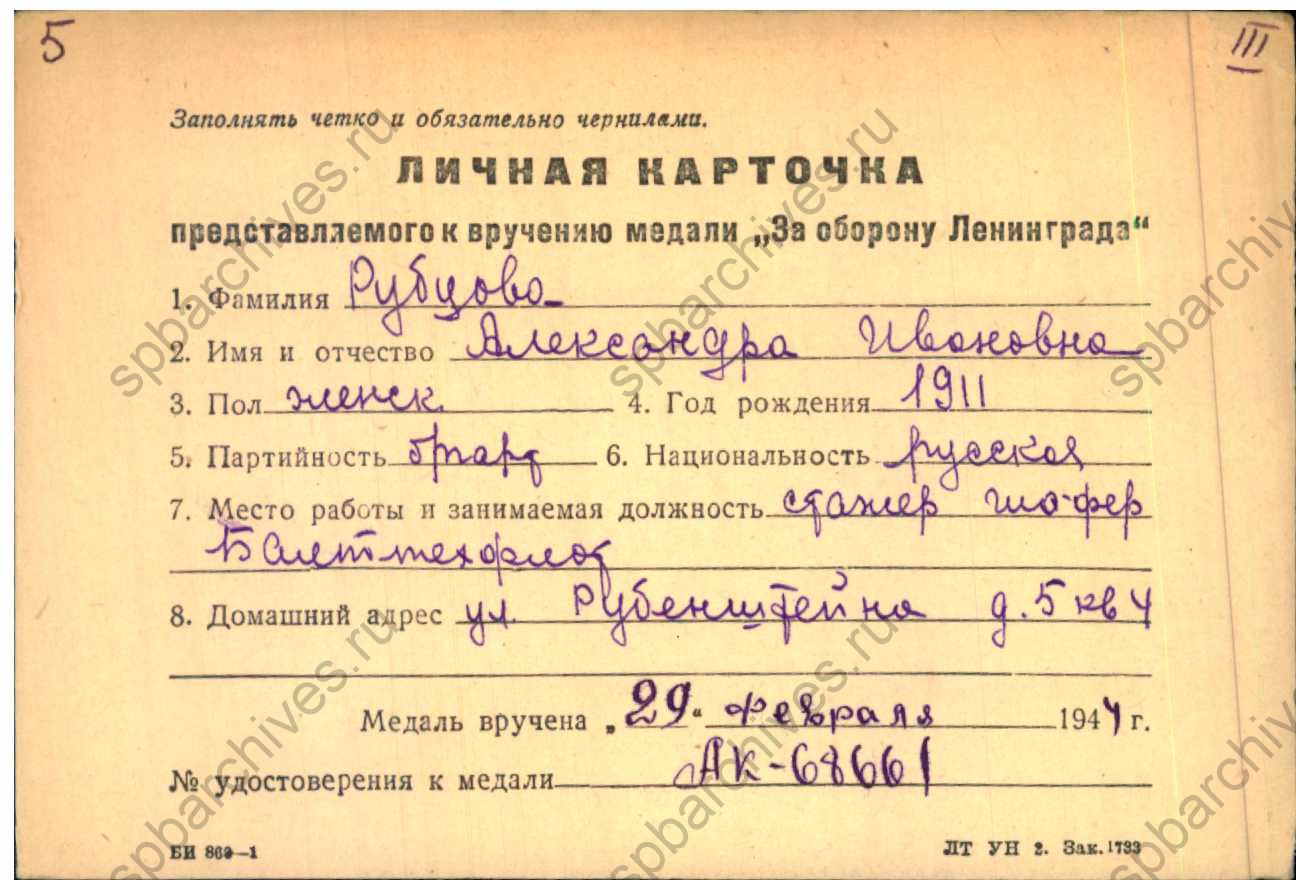 5 III
Заполнять четко и обязательно чернилами.
ЛИЧНАЯ КАРТОЧКА
представляемого к вручению медали „За оборону Ленинграда“
1. Фамилия Рубцова
2. Имя и отчество Александра Ивановна
3. Пол женск. 4. Год рождения 1911
5. Партийность б/парт 6. Национальность русская
7. Место работы и занимаемая должность стажер шофер
Балттехфлот
8. Домашний адрес ул. Рубенштейна д. 5 кв 4
Медаль вручена „29“ февраля 1944 г.
№ удостоверения к медали АК-68661
БИ 869—1 ЛТ УН 2. Зак. 1733
spbarchives.ru
spbarchives.ru
spbarchives.ru
spbarchives.ru